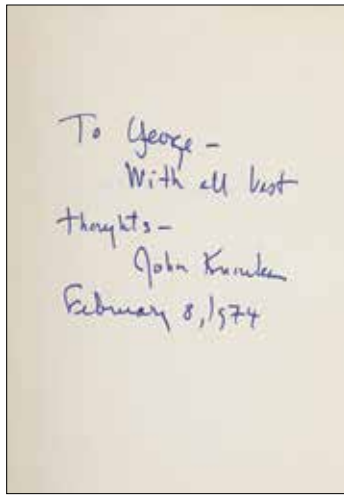 To George -
With all best
thoughts -
John Knowles
February 8, 1974